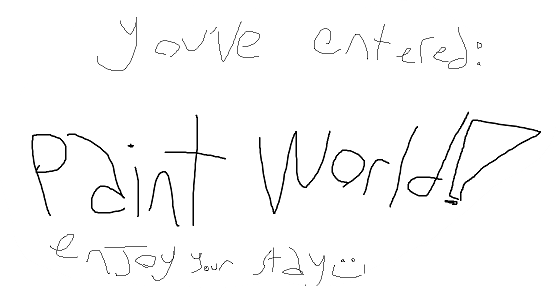 you've entered:
Paint World!
enjoy your stay :)